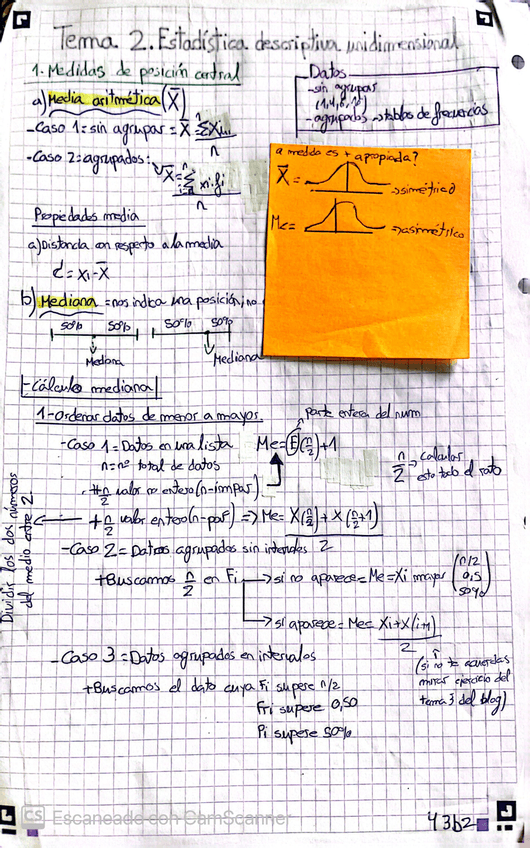 Tema 2. Estadística descriptiva unidimensional
1. Medidas de posición central
Datos
-sin agrupar
-agrupados → tablas de frecuencias
a) Media aritmética (X̄)
-Caso 1: sin agrupar = X̄
n
-Caso 2: agrupados:
X̄ = Σ xi·fi
n
a medida es + apropiada?
X̄ =
→ simétrico
Me =
⇒ asimétrico
Propiedades media
a) Distancia con respecto a la media
d = xi - X̄
b) Mediana = nos indica una posición, no
50% 50% 50% 50%
Mediana
Mediana
-Cálculo mediana
1-Ordenar datos de menor a mayor.
parte entera del num
-Caso 1 = Datos en una lista Me = E(n/2)+1
n = nº total de datos
n/2 ⇒ calcular esto todo el rato
+ n/2 valor no entero (n-impar)
+ n/2 valor entero (n-par) ⇒ Me = X(n/2) + X(n/2+1)
2
Dividir los dos números
del medio entre 2.
-Caso 2 = Datos agrupados sin intervalos
+Buscamos n/2 en Fi
→ si no aparece = Me = Xi mayor (n/2
0,5
50%)
→ si aparece = Me = Xi + X(i+1)
2
(si no te acuerdas
mirar ejercicio del
tema 3 del blog)
-Caso 3 = Datos agrupados en intervalos
+Buscamos el dato cuya Fi supere n/2
Fri supere 0,50
Pi supere 50%
CS Escaneado con CamScanner
43b2